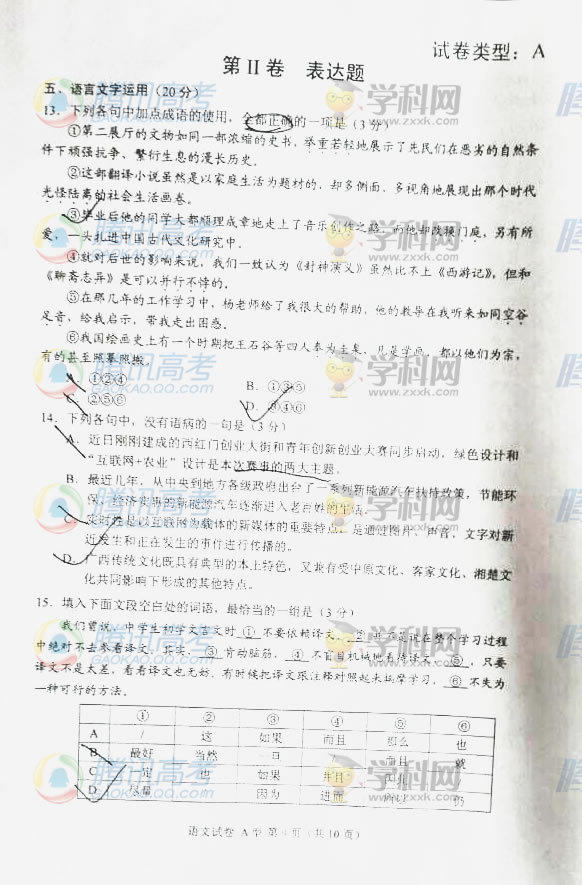 试卷类型：A
第 II 卷 表达题
五、语言文字运用（20分）
13．下列各句中加点成语的使用，全都正确的一项是（3分）
①第二展厅的文物如同一部浓缩的史书，举重若轻地展示了先民们在恶劣的自然条
件下顽强抗争、繁衍生息的漫长历史。
②这部翻译小说虽然是以家庭生活为题材的，却多侧面、多视角地展现出那个时代
光怪陆离的社会生活画卷。
③毕业后他的同学大都顺理成章地走上了音乐创作之路，而他却改换门庭，另有所
爱，一头扎进中国古代文化研究中。
④就对后世的影响来说，我们一致认为《封神演义》虽然比不上《西游记》，但和
《聊斋志异》是可以并行不悖的。
⑤在那几年的工作学习中，杨老师给了我很大的帮助，他的教导在我听来如同空谷
足音，给我启示，带我走出困惑。
⑥我国绘画史上有一个时期把王石谷等四人奉为圭臬，凡是学画，都以他们为宗，
有的甚至照摹照搬。
A．①②④ B．①③⑤
C．②⑤⑥ D．③④⑥
14．下列各句中，没有语病的一句是（3分）
A．近日刚刚建成的西红门创业大街和青年创新创业大赛同步启动，绿色设计和
“互联网+农业”设计是本次赛事的两大主题。
B．最近几年，从中央到地方各级政府出台了一系列新能源汽车扶持政策，节能环
保、经济实惠的新能源汽车逐渐进入老百姓的生活。
C．实时性是以互联网为载体的新媒体的重要特点，是通过图片、声音、文字对新
近发生和正在发生的事件进行传播的。
D．广西传统文化既具有典型的本土特色，又兼有受中原文化、客家文化、湘楚文
化共同影响下形成的其他特点。
15．填入下面文段空白处的词语，最恰当的一组是（3分）
我们曾说，中学生初学文言文时 ① 不要依赖译文， ② 并不是说在整个学习过程
中绝对不去参看译文。其实， ③ 肯动脑筋， ④ 不盲目机械地看待译文， ⑤ ，只要
译文不是太差，看看译文也无妨。有时候把译文跟注释对照起来揣摩学习， ⑥ 不失为
一种可行的方法。
① ② ③ ④ ⑤ ⑥
A / 这 如果 而且 那么 也
B 最好 当然 一旦 / 而且 就
C 一定 也 如果 并且 因此 /
D 尽量 因为 进而 所以 仍
语文试卷 A 型 第 4 页（共 10 页）
腾讯高考
GAOKAO.QQ.COM
学科网
www.zxxk.com